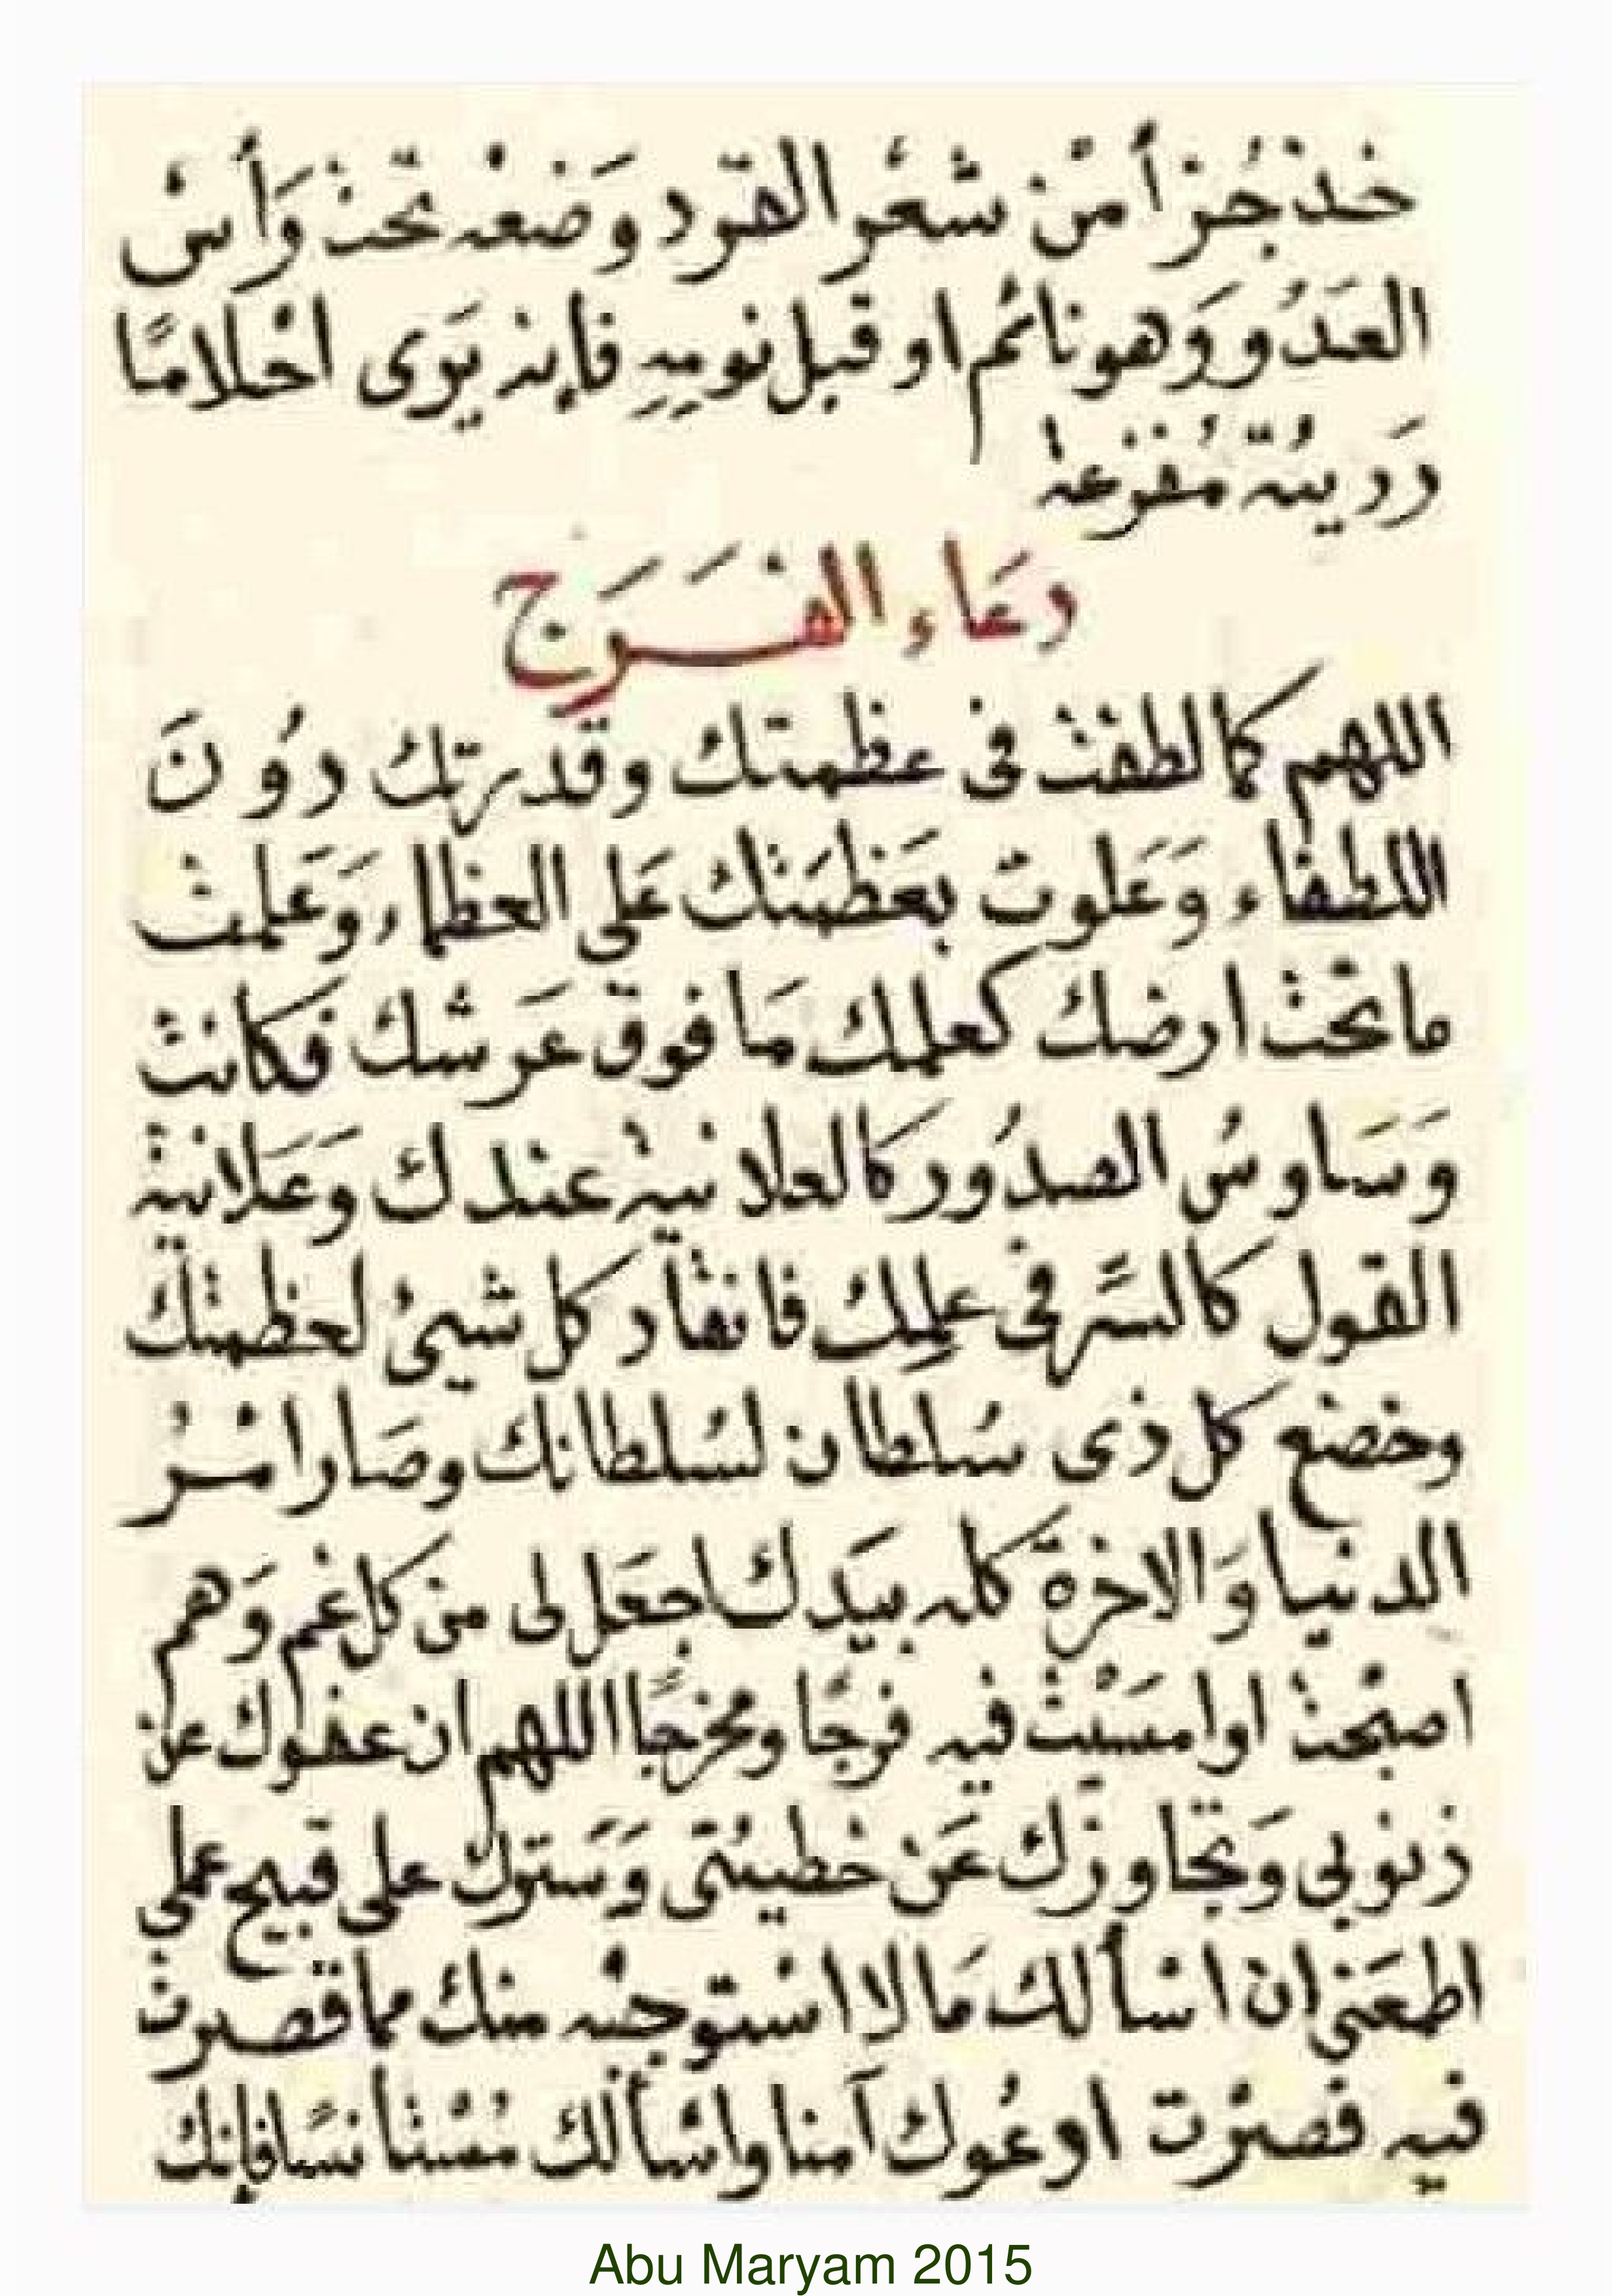 خذ جزأ من شعر القرد وضعه تحت وأس
العدو وهو نائم او قبل نوميه فإنه يرى احلاما
رديئة مفزعه
دعاء الفرج
اللهم كما لطفت فى عظمتك وقدرتك دون
اللطفاء وعلوت بعظمتك على العظماء وعلمت
ما تحت ارضك كعلمك ما فوق عرشك فكانت
وساوس الصدور كالعلانيه عندك وعلانية
القول كالسر فى علمك فانقاد كل شيئ لعظمتك
وخضع كل ذى سلطان لسلطانك وصار امر
الدنيا والاخرة كله بيدك اجعل لى من كل غم وهم
اصبحت او امسيت فيه فرجا ومخرجا اللهم ان عفوك عن
ذنوبي وتجاوزك عن خطيئتى وسترك على قبيح عملي
اطمعني ان اسألك ما لا استوجبه منك مما قصرت
فيه قصرت ادعوك آمنا واسألك مستأنسا فإنك
Abu Maryam 2015